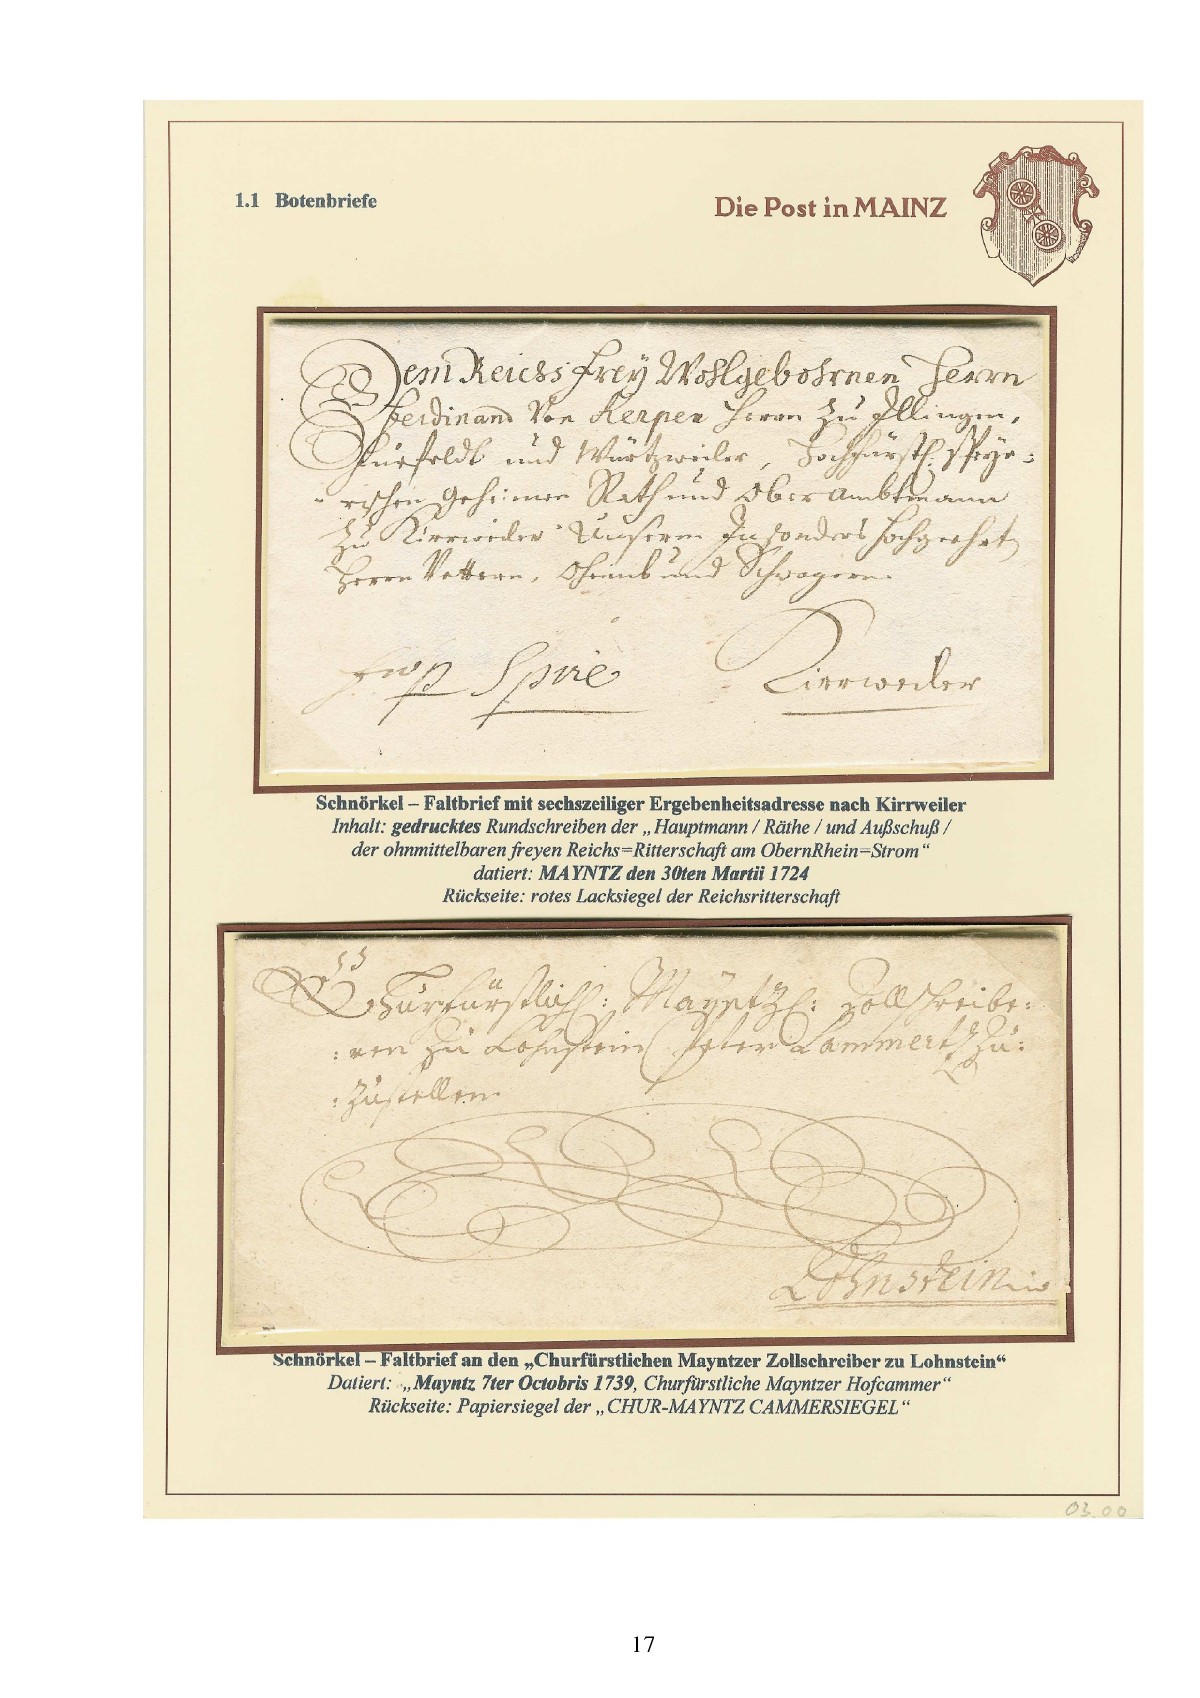 1.1 Botenbriefe
Die Post in MAINZ
Dem Reichs frey Wohlgebohrnen Herrn
Ferdinand Von Kerpen Herrn zu Illingen,
und Würtzweiler, Hochfürstl. Speye:
rischen Geheimen Rath und Ober Ambtmann
zu Kirrweiler Unserm Insonders hochgeehrt
Herrn Vettern, Oheimb und Schwagern
Spire
Kirrweiler
Schnörkel – Faltbrief mit sechszeiliger Ergebenheitsadresse nach Kirrweiler
Inhalt: gedrucktes Rundschreiben der „Hauptmann / Räthe / und Außschuß /
der ohnmittelbaren freyen Reichs=Ritterschaft am ObernRhein=Strom“
datiert: MAYNTZ den 30ten Martii 1724
Rückseite: rotes Lacksiegel der Reichsritterschaft
Churfürstlich: Mayntz: Zollschreibe:
:ren zu Lohnstein Peter Lammertz zu:
:zustellen
Lohnstein
Schnörkel – Faltbrief an den „Churfürstlichen Mayntzer Zollschreiber zu Lohnstein“
Datiert: „Mayntz 7ter Octobris 1739, Churfürstliche Mayntzer Hofcammer“
Rückseite: Papiersiegel der „CHUR-MAYNTZ CAMMERSIEGEL“
03.00
17